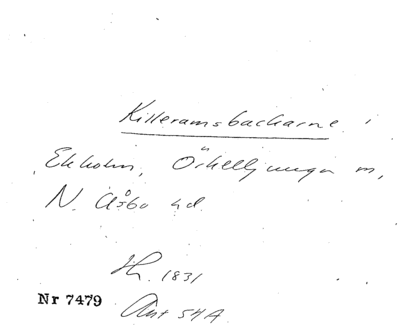 Killeramsbackarne i
Ekholm, Örkelljunga sn,
N. Åsbo hd
1831
Nr 7479
Ant 54A